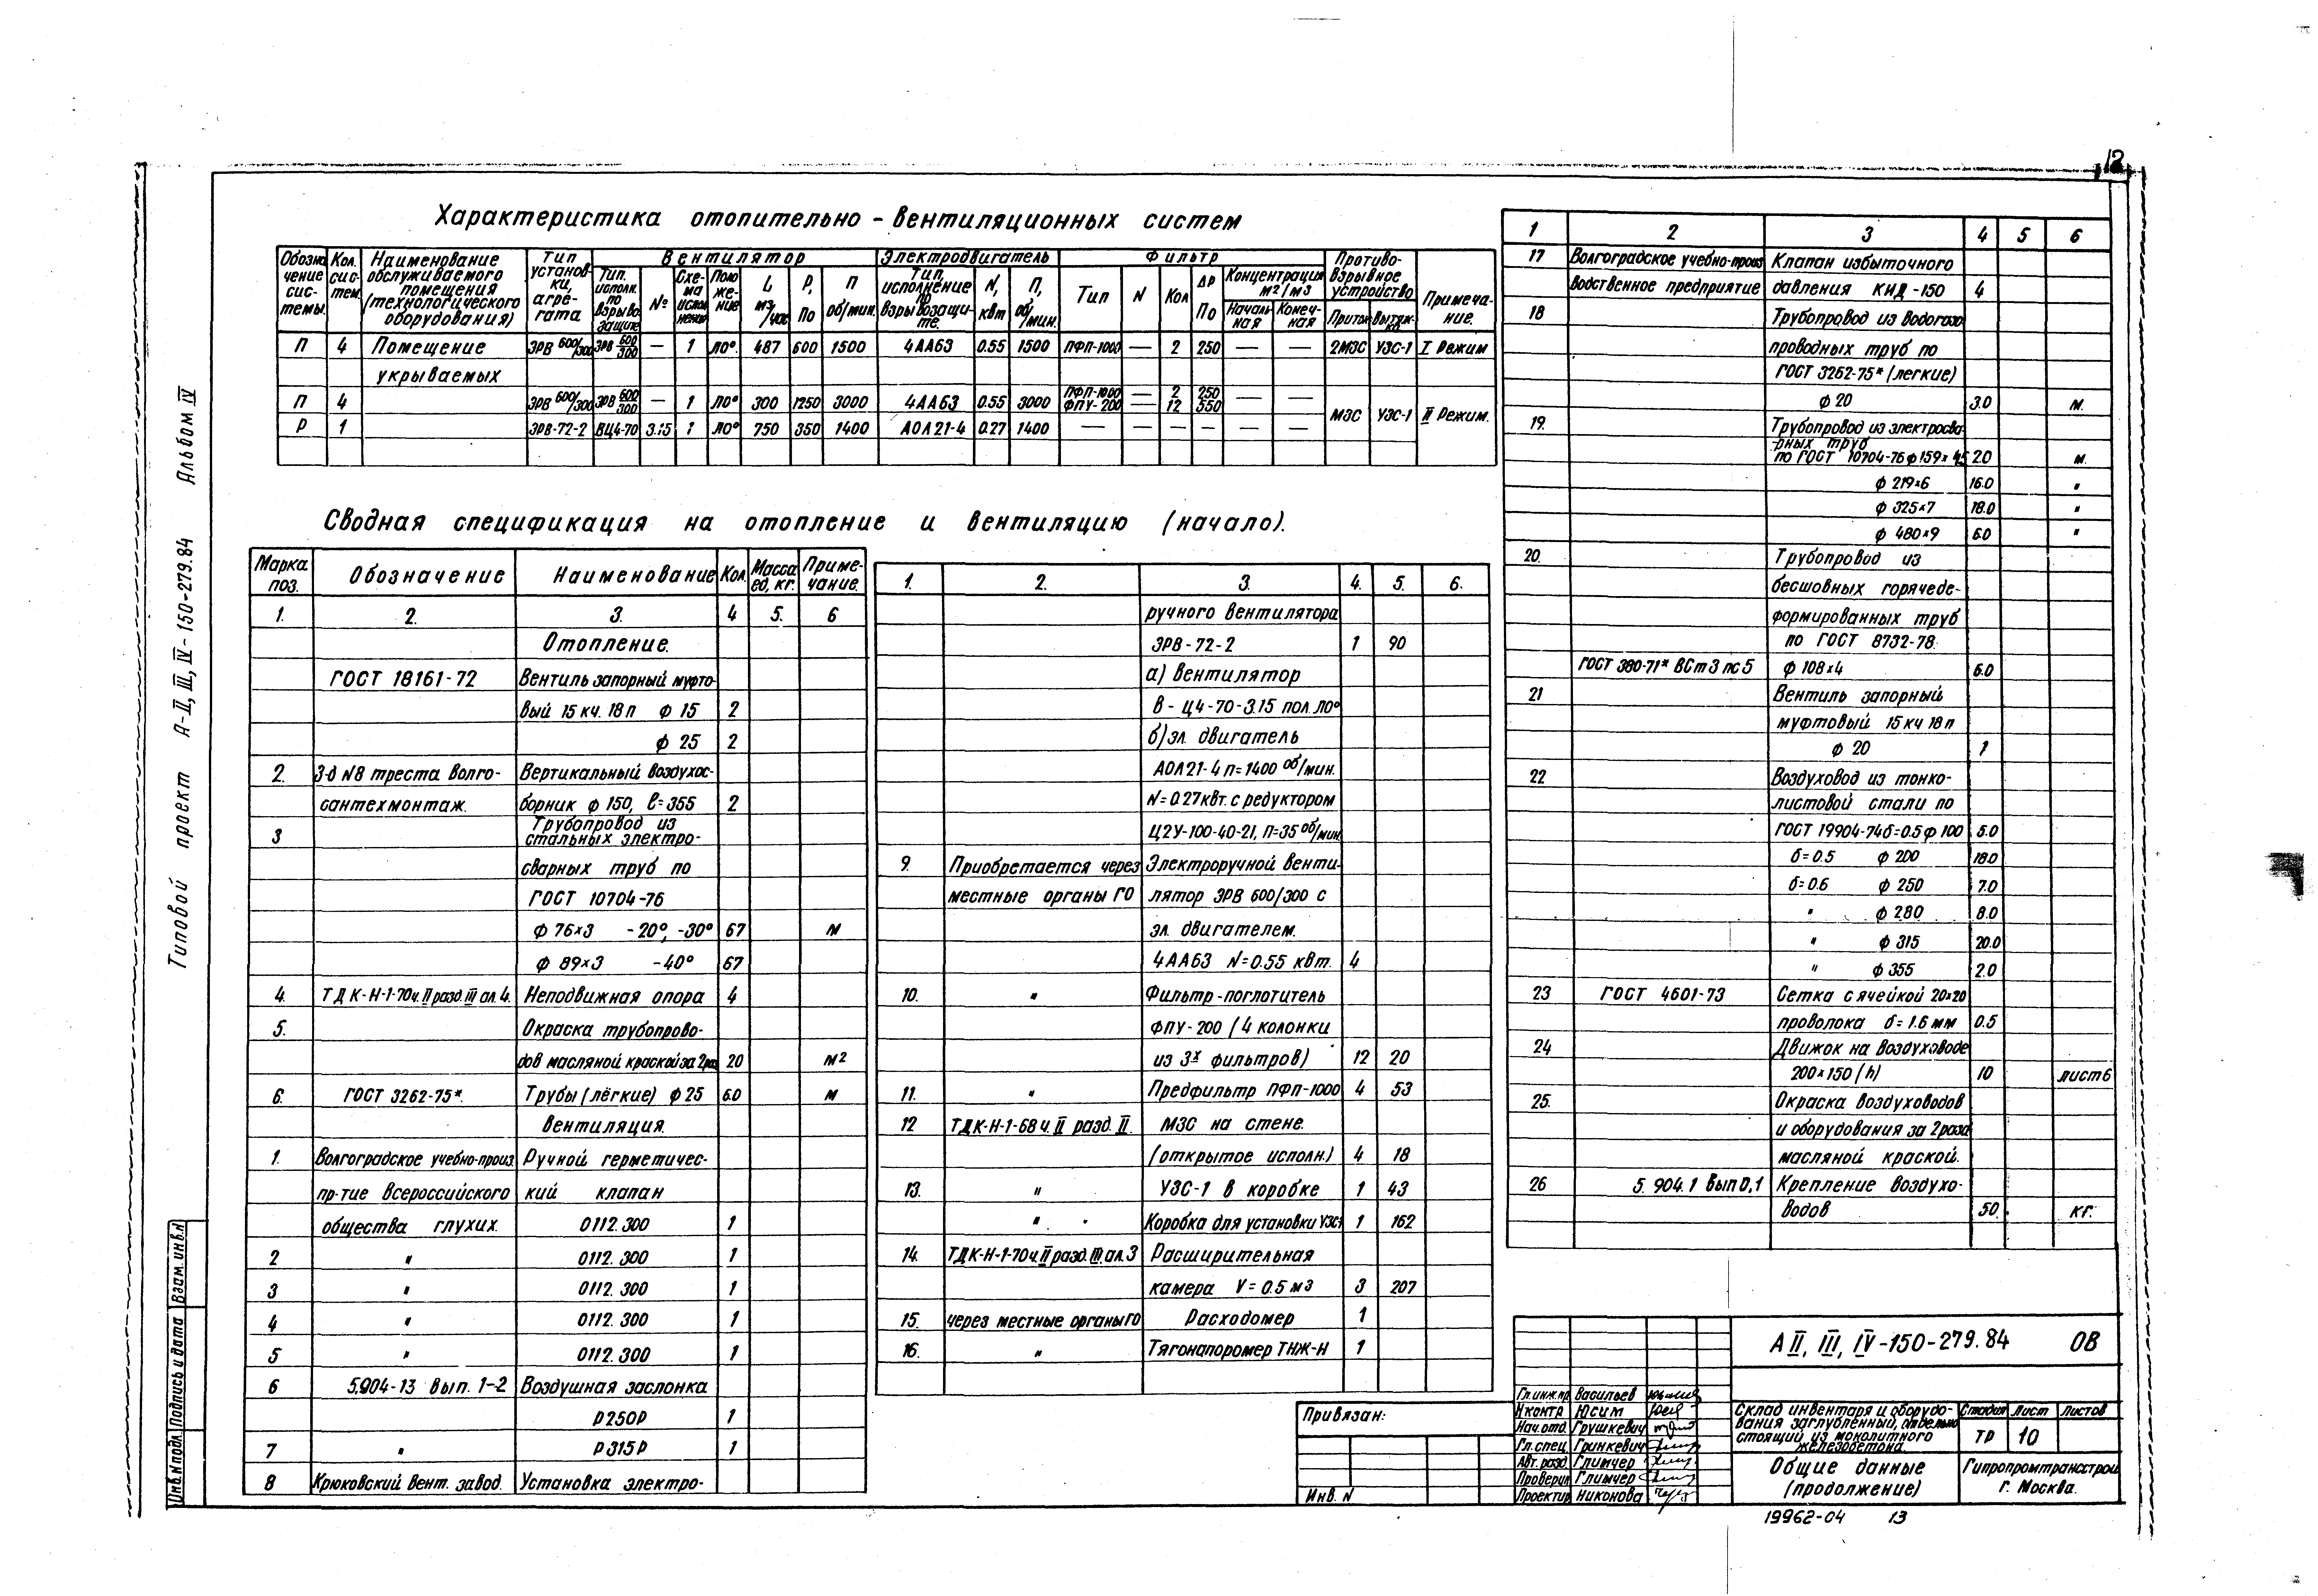 12
Характеристика отопительно - вентиляционных систем
Обозначение системы. | Кол. систем | Наименование обслуживаемого помещения (технологического оборудования) | Тип установки, агрегата | Вентилятор | Электродвигатель | Фильтр | Противовзрывное устройство | Примечание.
Тип. исполн. по взрывозащите | № | Схема исполнения | Положение | L м3/час | P, Па | П об/мин. | Тип, исполнение по взрывозащите. | N, квт | П, об/мин. | Тип | N | Кол | ΔР По | Концентрация м2/м3 | Начальная | Конечная | Приток | Вытяжка
П | 4 | Помещение | ЭРВ 600/300 | ЭРВ 600/300 | — | 1 | ЛО°. | 487 | 600 | 1500 | 4АА63 | 0.55 | 1500 | ПФП-1000 | — | 2 | 250 | — | — | 2МЗС | УЗС-1 | I Режим
укрываемых
П | 4 | ЭРВ 600/300 | ЭРВ 600/300 | — | 1 | ЛО° | 300 | 1250 | 3000 | 4АА63 | 0.55 | 3000 | ПФП-1000 ФПУ-200 | — — | 2 12 | 250 550 | — | — | МЗС | УЗС-1 | II Режим.
Р | 1 | ЭРВ-72-2 | ВЦ4-70 | 3.15 | 1 | ЛО° | 750 | 350 | 1400 | АОЛ21-4 | 0.27 | 1400 | — | — | — | — | — | —
Сводная спецификация на отопление и вентиляцию (начало).
Марка поз. | Обозначение | Наименование | Кол. | Масса ед, кг. | Примечание.
1. | 2. | 3. | 4 | 5. | 6
Отопление.
ГОСТ 18161-72 | Вентиль запорный муфто-
вый 15 кч. 18п ф 15 | 2
ф 25 | 2
2. | З-д N8 треста Волго- | Вертикальный воздухос-
сантехмонтаж. | борник ф 150, ℓ=355 | 2
3 | Трубопровод из
стальных электро-
сварных труб по
ГОСТ 10704-76
ф 76×3 -20°, -30° | 67 | м
ф 89×3 -40° | 67
4. | ТДК-Н-1-70ч. II разд. III ал. 4. | Неподвижная опора | 4
5. | Окраска трубопрово-
дов масляной краской за 2раз | 20 | м2
6. | ГОСТ 3262-75*. | Трубы (лёгкие) ф 25 | 6.0 | м
Вентиляция.
1. | Волгоградское учебно-произ. | Ручной герметичес-
пр-тие Всероссийского | кий клапан
общества глухих. | 0112.300 | 1
2 | " | 0112.300 | 1
3 | " | 0112.300 | 1
4 | " | 0112.300 | 1
5 | " | 0112.300 | 1
6 | 5.904-13 вып. 1-2 | Воздушная заслонка
Р250Р | 1
7 | " | Р315Р | 1
8 | Крюковский вент. завод. | Установка электро-
1. | 2. | 3. | 4. | 5. | 6.
ручного вентилятора
ЭРВ-72-2 | 1 | 90
а) вентилятор
В-Ц4-70-3.15 пол. ЛО°
б) эл. двигатель
АОЛ21-4 п=1400 об/мин.
N=0.27квт. с редуктором
Ц2У-100-40-21, П=35 об/мин
9. | Приобретается через | Электроручной венти-
местные органы ГО | лятор ЭРВ 600/300 с
эл. двигателем.
4АА63 N=0.55 квт. | 4
10. | " | Фильтр-поглотитель
ФПУ-200 (4 колонки
из 3х фильтров) | 12 | 20
11. | " | Предфильтр ПФП-1000 | 4 | 53
12 | ТДК-Н-1-68 ч. II разд. II. | МЗС на стене.
(открытое исполн.) | 4 | 18
13. | " | УЗС-1 в коробке | 1 | 43
" | Коробка для установки УЗС-1 | 1 | 162
14. | ТДК-Н-1-70ч. II разд. III. ал.3 | Расширительная
камера V=0.5 м3 | 3 | 207
15. | через местные органы ГО | Расходомер | 1
16. | " | Тягонапоромер ТНЖ-Н | 1
1 | 2 | 3 | 4 | 5 | 6
17 | Волгоградское учебно-произ | Клапан избыточного
водственное предприятие | давления КИД-150 | 4
18 | Трубопровод из водогазо
проводных труб по
ГОСТ 3262-75* (легкие)
ф 20 | 3.0 | м.
19. | Трубопровод из электросва-
рных труб
по ГОСТ 10704-76 ф 159× 4.5 | 2.0 | м.
ф 219×6 | 16.0 | "
ф 325×7 | 18.0 | "
ф 480×9 | 6.0 | "
20. | Трубопровод из
бесшовных горячеде-
формированных труб
по ГОСТ 8732-78.
ГОСТ 380-71* ВСт3 пс5 | ф 108×4 | 6.0
21 | Вентиль запорный
муфтовый 15 кч 18п
ф 20 | 1
22 | Воздуховод из тонко-
листовой стали по
ГОСТ 19904-74 б=0.5 ф 100 | 5.0
б=0.5 ф 200 | 18.0
б=0.6 ф 250 | 7.0
" ф 280 | 8.0
" ф 315 | 20.0
" ф 355 | 2.0
23 | ГОСТ 4601-73 | Сетка с ячейкой 20×20
проволока б=1.6 мм | 0.5
24 | Движок на воздуховоде
200×150 (h) | 10 | лист 6
25. | Окраска воздуховодов
и оборудования за 2 раза
масляной краской.
26 | 5.904.1 вып 0,1 | Крепление воздухо-
водов | 50. | кг.
Типовой проект А-II, III, IV-150-279.84 Альбом IV
Инв.N подл. | Подпись и дата | Взам. инв.N
Привязан:
Инв. N
А II, III, IV-150-279.84 ОВ
Гл.инж.пр. Васильев
Н.контр Юсим
Нач.отд. Грушкевич
Гл.спец. Гринкевич
Авт. разд. Глимчер
Проверил Глимчер
Проектир. Никонова
Склад инвентаря и оборудо-
вания заглубленный, отдельно
стоящий из монолитного
железобетона.
Стадия | Лист | Листов
ТР | 10
Общие данные
(продолжение)
Гипропромтрансстрой
г. Москва.
19962-04 13